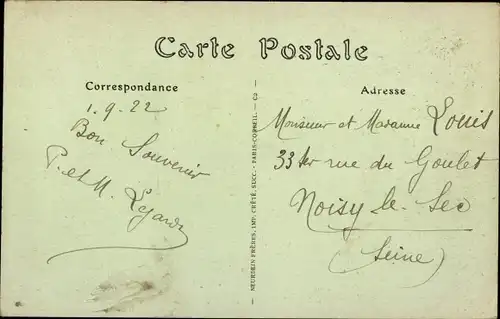 Carte Postale
Correspondance
1.9.22
Bon Souvenir
P. et M. Legardz
NEURDEIN FRÈRES, IMP. CRÉTÉ, SUCC. - PARIS-CORBEIL. - C2
Adresse
Monsieur et Madame Louis
33 ter rue du Goulet
Noisy le Sec
(Seine)